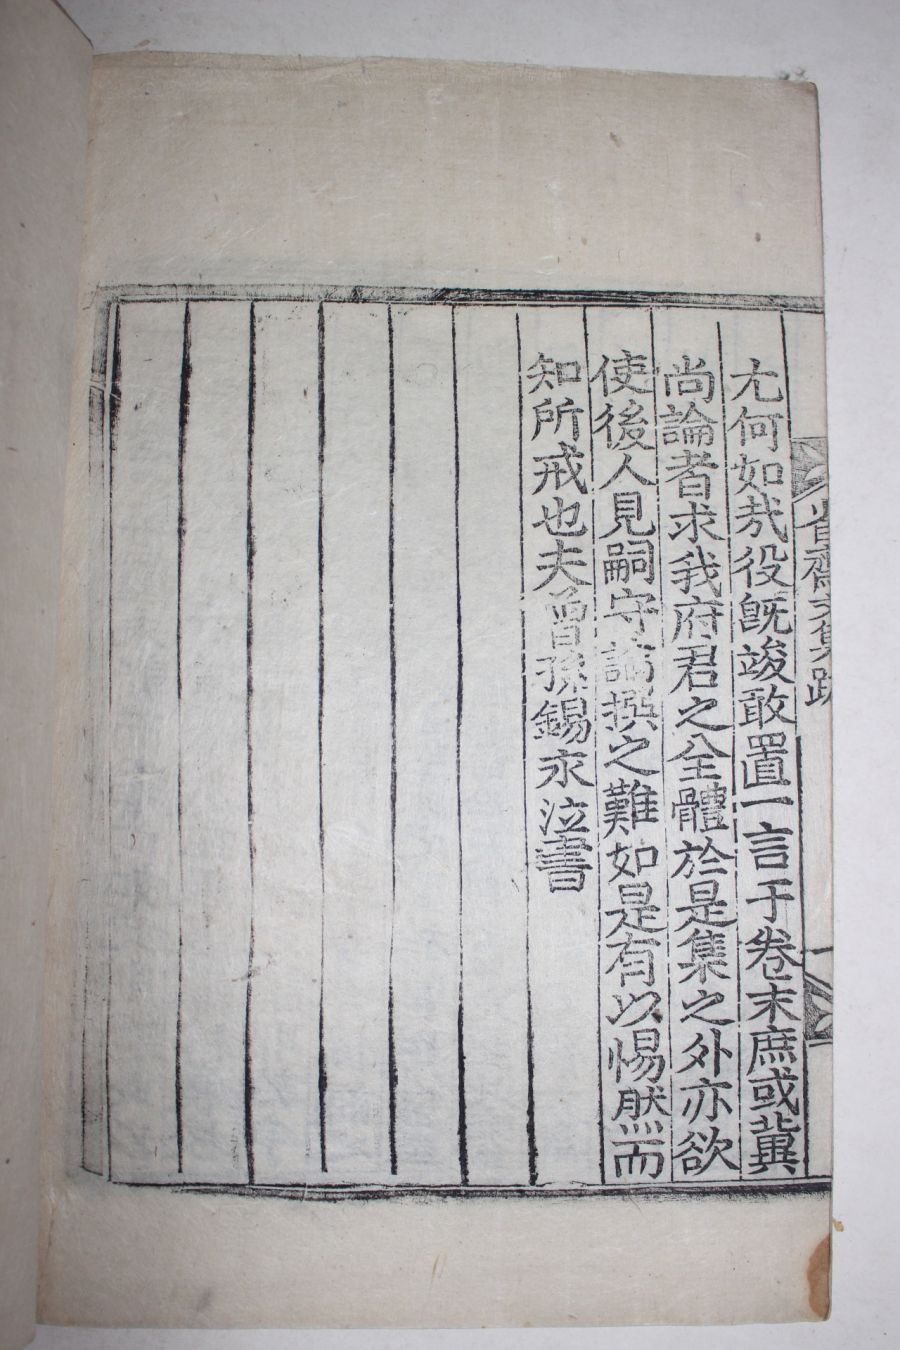 尤何如哉役旣竣敢置一言于卷末庶或冀
尚論者求我府君之全體於是集之外亦欲
使後人見嗣守論撰之難如是有以惕然而
知所戒也夫曾孫錫永泣書
省齋文集 跋